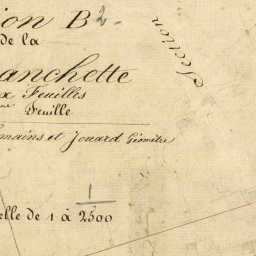 ion B 2.
de la
anchette
x Feuilles
Feuille
mains et Jouard Géomètre
1
elle de 1 à 2500
Section